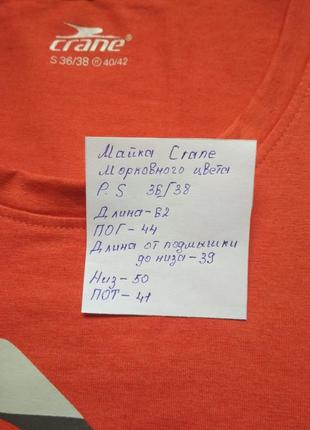 crane®
S 36/38 Ⓕ 40/42
Майка Crane
Морковного цвета
Р. S 36/38
Длина-62
ПОГ-44
Длина от подмышки
до низа-39
Низ-50
ПОТ-41